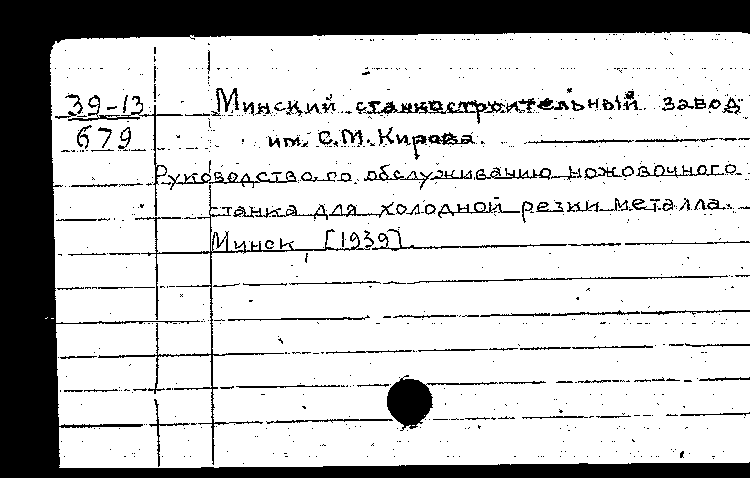 39-13 Минский станкостроительный завод
679 им. С.М. Кирова.
Руководство по обслуживанию ножовочного
станка для холодной резки металла.
Минск, [1939].